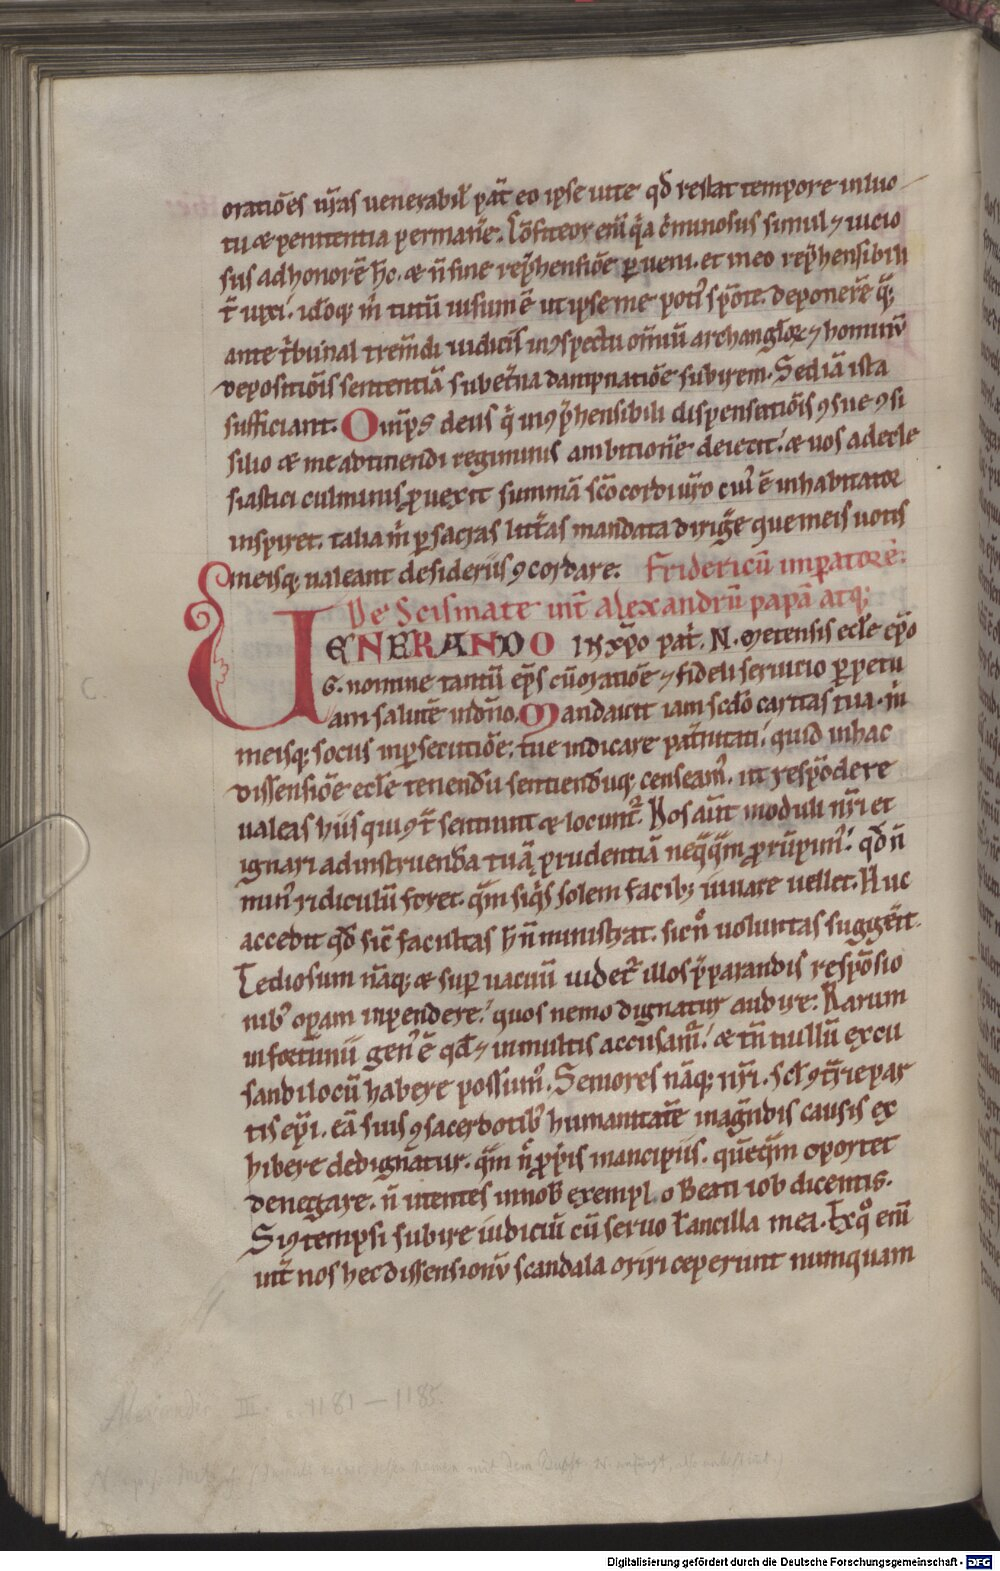 oratiões ṽras uenerabil pat̃ eo ipse uite qd̃ restat tempore in luc
tu & penitentia permane̅. Co̅fiteor eni̅ qa c̓minosus simul ⁊ uicio
sus ad honore̅ hc̅. & n̅ sine rep̓hensio̅e ꝑueni. et in eo rep̓hensibilit̓
uixi. idoq; m̓ tutu̅ uisum e̅ ut ipse me poti᷒ spo̅te deponere̅ q̅;
ante t̓bunal trem̅di iudicis in ɔspectu om̅iu̅ archangloꝝ ⁊ hominu̅
depositio̅is sententia̅ sub et̓na dampnatio̅e subirem. Sed ia̅ ista
sufficiant. Omp̅s deus q̓ inɔp̓hensibili dispensatio̅is ɔsue ɔsi
silio & me ad tinendi regiminis ambitione̅ deiecit. & uos ad eccle
siastici culminis ꝓuexit summa̅ sc̅o cordi ur̅o cui᷒ e̅ inhabitator
inspiret. talia m̓ ꝑ sacras litt̓as mandata dirig̓e que meis uotis
meisq; ualeant desideriis ɔcordare. Fridericu̅ imꝑatore̅.
De Scismate int̓ alexandru̅ papa̅ atq;
UENERANDO IN xp̅o pat̓. N. metensis eccl̅e ep̅o
G. nomine tantu̅ ep̅s cu̅ oratio̅e ⁊ fideli seruicio ꝑpetu
am salute̅ in dn̅o. Mandauit iam sc̅do caritas tua. m̓
meisq; sociis in ꝑsecutio̅e. tue indicare pat̓nitati. quid in hac
dissensio̅e eccl̅e tenendu̅ sentiendu̅q; censeam᷒. ut respo̅dere
ualeas hiis qui ɔt̓ sentiunt & locunt᷑. Nos aut̅ moduli nr̅i et
ignari ad instruenda̅ tua̅ prudentia̅ neq̅q̅m prorupim᷒. qd̅ n̅
min᷒ ridiculu̅ foret. q̅m siq̓s solem facib; iuuare uellet. Huc
accedit qd̅ sic̅ facultas h̅ n̅ ministrat. sic nͦ uoluntas sugger̅it.
Tediosum na̅q; & suꝑuacuu̅ uidet᷑ illos p̓parandis respo̅sio
nib᷒ oꝑam inpendere. quos nemo dignatur audire. Rarum
infortunii gen᷒ e̅ qd̅ ⁊ in multis accusam᷑. & tn̅ nullu̅ excu
sandi locu̅ habere possum᷒. Seniores na̅q; nr̅i. scl̅ ɔt̓rie par
tis ep̅i. ea̅ suis ɔsacerdotib᷒ humanitate̅ in agn̅dis causis ex
hibere dedignatur. q̅m n̅ ꝓp̓is mancipiis. que̅q̅m oportet
denegare. n̅ intentes in nob̅ exemplo Beati iob dicentis.
Si ɔtempsi subire iudiciu̅ cu̅ seruo ł ancilla mea. Ex qͦ eni̅
int̓ nos hec dissensionu̅ scandala oriri ceperunt numquam
C.
Alexander III. a. 1181 — 1185.
Digitalisierung gefördert durch die Deutsche Forschungsgemeinschaft - DFG